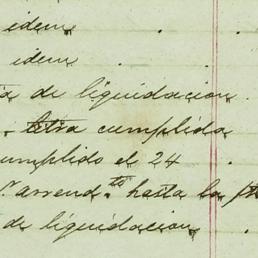 idem
idem
de liquidacion
Letra cumplida
cumplido el 24
arrend.to hasta la
de liquidacion